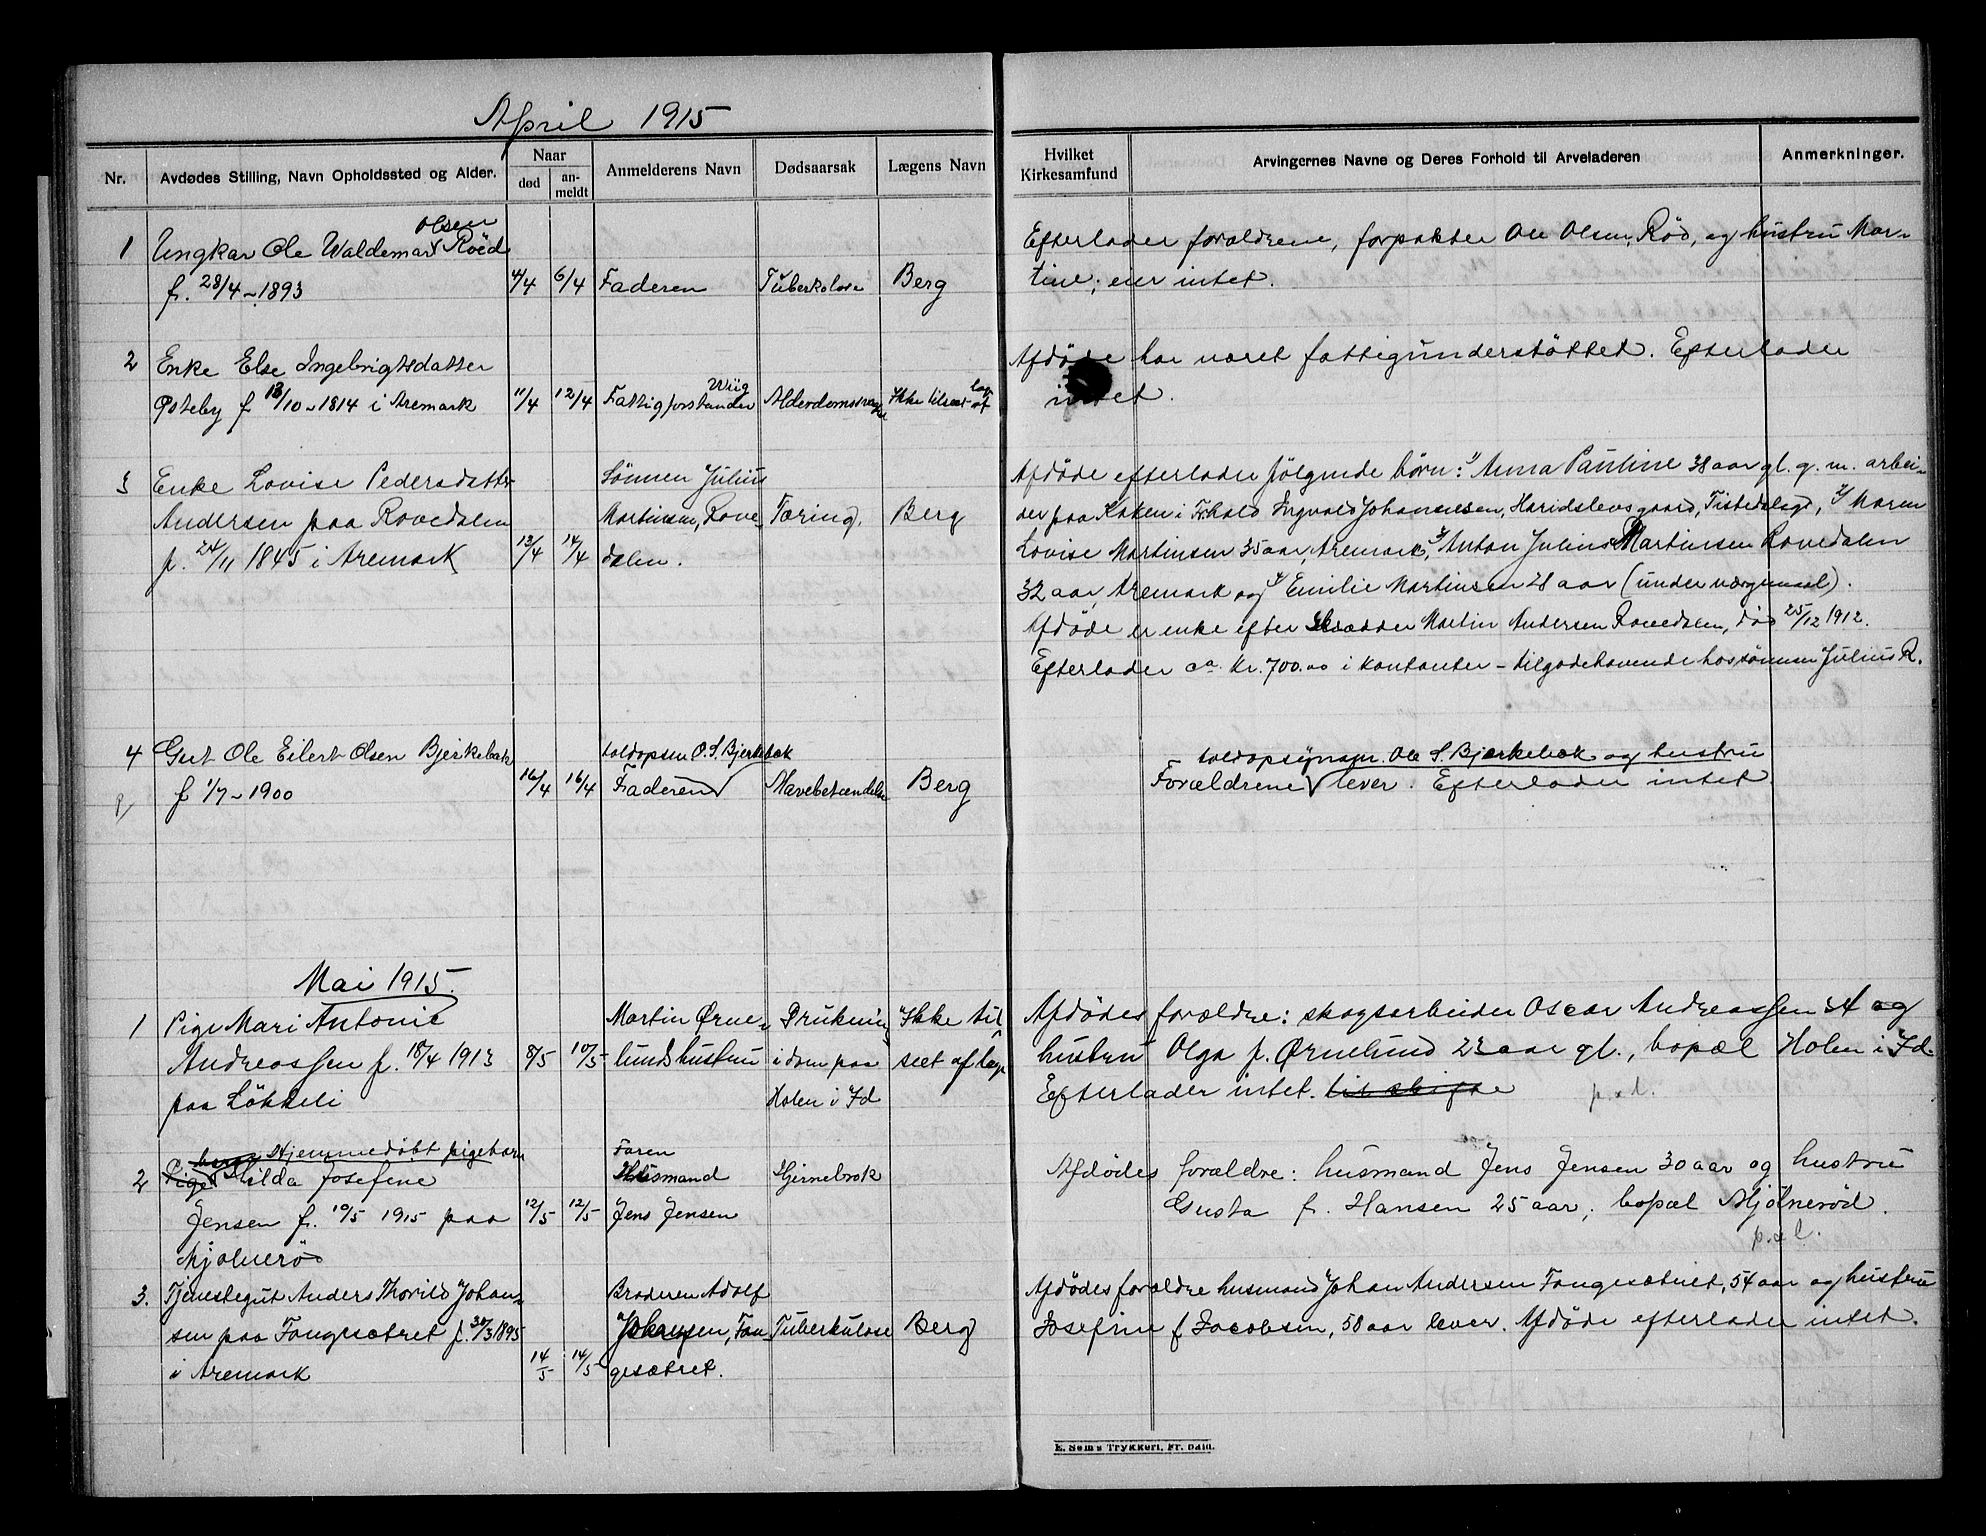 April 1915
Nr.
Avdødes Stilling, Navn Opholdssted og Alder.
Naar
død
an-
meldt
Anmelderens Navn
Dødsaarsak
Lægens Navn
Hvilket
Kirkesamfund
Arvingernes Navne og Deres Forhold til Arveladeren
Anmerkninger.
Olsen
1 Ungkar Ole Waldemar Röed
f. 28/4 - 1893 4/4 6/4 Faderen Tuberkolose Berg
Efterlader forældrene, forpakter Ole Olsen Röd, og hustru Mar-
tine; eier intet.
2 Enke Else Ingebrigtsdatter
f 13/10 - 1814 i Aremark 11/4 12/4 Fattigforstander Wiig Ikke tilseet af
Afdöde har været fattigunderstöttet. Efterlader
intet.
3 Enke Lovise Pedersdatter
Andersen paa Rovedalen
f. 24/11 1845 i Aremark 13/4 14/4
Sönnen Julius
Martinsen, Rove-
dalen.
Tæring. Berg
Afdöde efterlader fölgende börn: 1/ Anna Pauline 38 aar gl. g. m. arbei-
der paa Kaken i Frhald Ingvald Johannesen, Haridslevsgaard, Tistedalen, 2/ Maren
Lovise Martinsen 35 aar, Aremark, 3/ Anton Julius Martinsen Rovedalen
32 aar, Aremark og 4/ Emilie Martinsen 28 aar (under værgemaal).
Afdöde er enke efter Skrædder Martin Andersen Rovedalen, död 25/12 1912.
Efterlader ca. kr. 700.00 i kontanter - tilgodehavende hos sönnen Julius R.
4 Gut Ole Eilert Olsen Bjerkebæk
f 1/7 - 1900 16/4 16/4
toldopsen O. S. Bjerkebæk
Faderen Mavebetændelse Berg
toldopsynsm. Ole S. Bjerkebæk og hustru
Forældrene lever. Efterlader intet.
Mai 1915.
1 Pige Mari Antonie
Andreassen f. 18/4 1913
paa Lökkeli
8/5 10/5
Martin Ørne-
lunds hustru
Drukning
i dam paa
Holen i Id
Ikke til-
seet af læge
Afdödes forældre: skogsarbeider Oscar Andreassen 24 og
hustru Olga f. Ørnelund 23 aar gl., bopæl Holen i Id.
Efterlader intet. til skifte
2 Hjemmedöbt pigebarn
Pige Hilda Josefine
Jensen f. 10/5 1915 paa
Mjölnerö
12/5 12/5
Faren
Husmand
Jens Jensen
Hjernebrok
Afdödes forældre: husmand Jens Jensen 30 aar og hustru
Gusta f. Hansen 25 aar; bopæl Mjölneröd.
3. Tjenestegut Anders Thorild Johan-
sen paa Fangesætret f. 30/3 1895
i Aremark
14/5 14/5
Broderen Adolf
Johansen, Fan-
gesætret.
Tuberkulose Berg
Afdödes forældre husmand Johan Andersen Fangesætret, 54 aar og hustru
Josefine f Jacobsen, 58 aar lever. Afdöde efterlader intet.
E. Sem's Trykkeri, Fr. hald.